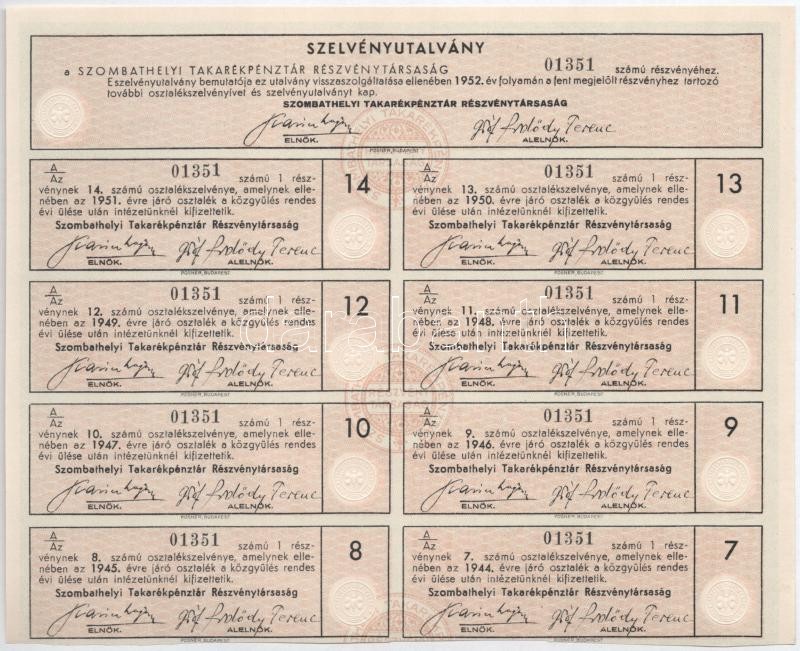 SZELVÉNYUTALVÁNY
a SZOMBATHELYI TAKARÉKPÉNZTÁR RÉSZVÉNYTÁRSASÁG 01351 számú részvényéhez.
E szelvényutalvány bemutatója ez utalvány visszaszolgáltatása ellenében 1952. év folyamán a fent megjelölt részvényhez tartozó
további osztalékszelvényívet és szelvényutalványt kap.
SZOMBATHELYI TAKARÉKPÉNZTÁR RÉSZVÉNYTÁRSASÁG
gróf Erdődy Ferenc
ELNÖK. ALELNÖK.
POSNER, BUDAPEST
A/Az 01351 számú 1 rész-
vénynek 14. számú osztalékszelvénye, amelynek elle-
nében az 1951. évre járó osztalék a közgyűlés rendes
évi ülése után intézetünknél kifizettetik.
Szombathelyi Takarékpénztár Részvénytársaság
gróf Erdődy Ferenc
ELNÖK. ALELNÖK.
14
POSNER, BUDAPEST
A/Az 01351 számú 1 rész-
vénynek 13. számú osztalékszelvénye, amelynek elle-
nében az 1950. évre járó osztalék a közgyűlés rendes
évi ülése után intézetünknél kifizettetik.
Szombathelyi Takarékpénztár Részvénytársaság
gróf Erdődy Ferenc
ELNÖK. ALELNÖK.
13
POSNER, BUDAPEST
A/Az 01351 számú 1 rész-
vénynek 12. számú osztalékszelvénye, amelynek elle-
nében az 1949. évre járó osztalék a közgyűlés rendes
évi ülése után intézetünknél kifizettetik.
Szombathelyi Takarékpénztár Részvénytársaság
gróf Erdődy Ferenc
ELNÖK. ALELNÖK.
12
POSNER, BUDAPEST
A/Az 01351 számú 1 rész-
vénynek 11. számú osztalékszelvénye, amelynek elle-
nében az 1948. évre járó osztalék a közgyűlés rendes
évi ülése után intézetünknél kifizettetik.
Szombathelyi Takarékpénztár Részvénytársaság
gróf Erdődy Ferenc
ELNÖK. ALELNÖK.
11
POSNER, BUDAPEST
A/Az 01351 számú 1 rész-
vénynek 10. számú osztalékszelvénye, amelynek elle-
nében az 1947. évre járó osztalék a közgyűlés rendes
évi ülése után intézetünknél kifizettetik.
Szombathelyi Takarékpénztár Részvénytársaság
gróf Erdődy Ferenc
ELNÖK. ALELNÖK.
10
POSNER, BUDAPEST
A/Az 01351 számú 1 rész-
vénynek 9. számú osztalékszelvénye, amelynek elle-
nében az 1946. évre járó osztalék a közgyűlés rendes
évi ülése után intézetünknél kifizettetik.
Szombathelyi Takarékpénztár Részvénytársaság
gróf Erdődy Ferenc
ELNÖK. ALELNÖK.
9
POSNER, BUDAPEST
A/Az 01351 számú 1 rész-
vénynek 8. számú osztalékszelvénye, amelynek elle-
nében az 1945. évre járó osztalék a közgyűlés rendes
évi ülése után intézetünknél kifizettetik.
Szombathelyi Takarékpénztár Részvénytársaság
gróf Erdődy Ferenc
ELNÖK. ALELNÖK.
8
POSNER, BUDAPEST
A/Az 01351 számú 1 rész-
vénynek 7. számú osztalékszelvénye, amelynek elle-
nében az 1944. évre járó osztalék a közgyűlés rendes
évi ülése után intézetünknél kifizettetik.
Szombathelyi Takarékpénztár Részvénytársaság
gróf Erdődy Ferenc
ELNÖK. ALELNÖK.
7
POSNER, BUDAPEST